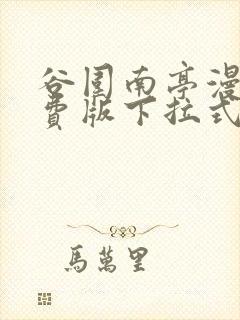 谷围南亭漫
费版下拉式
馬萬里